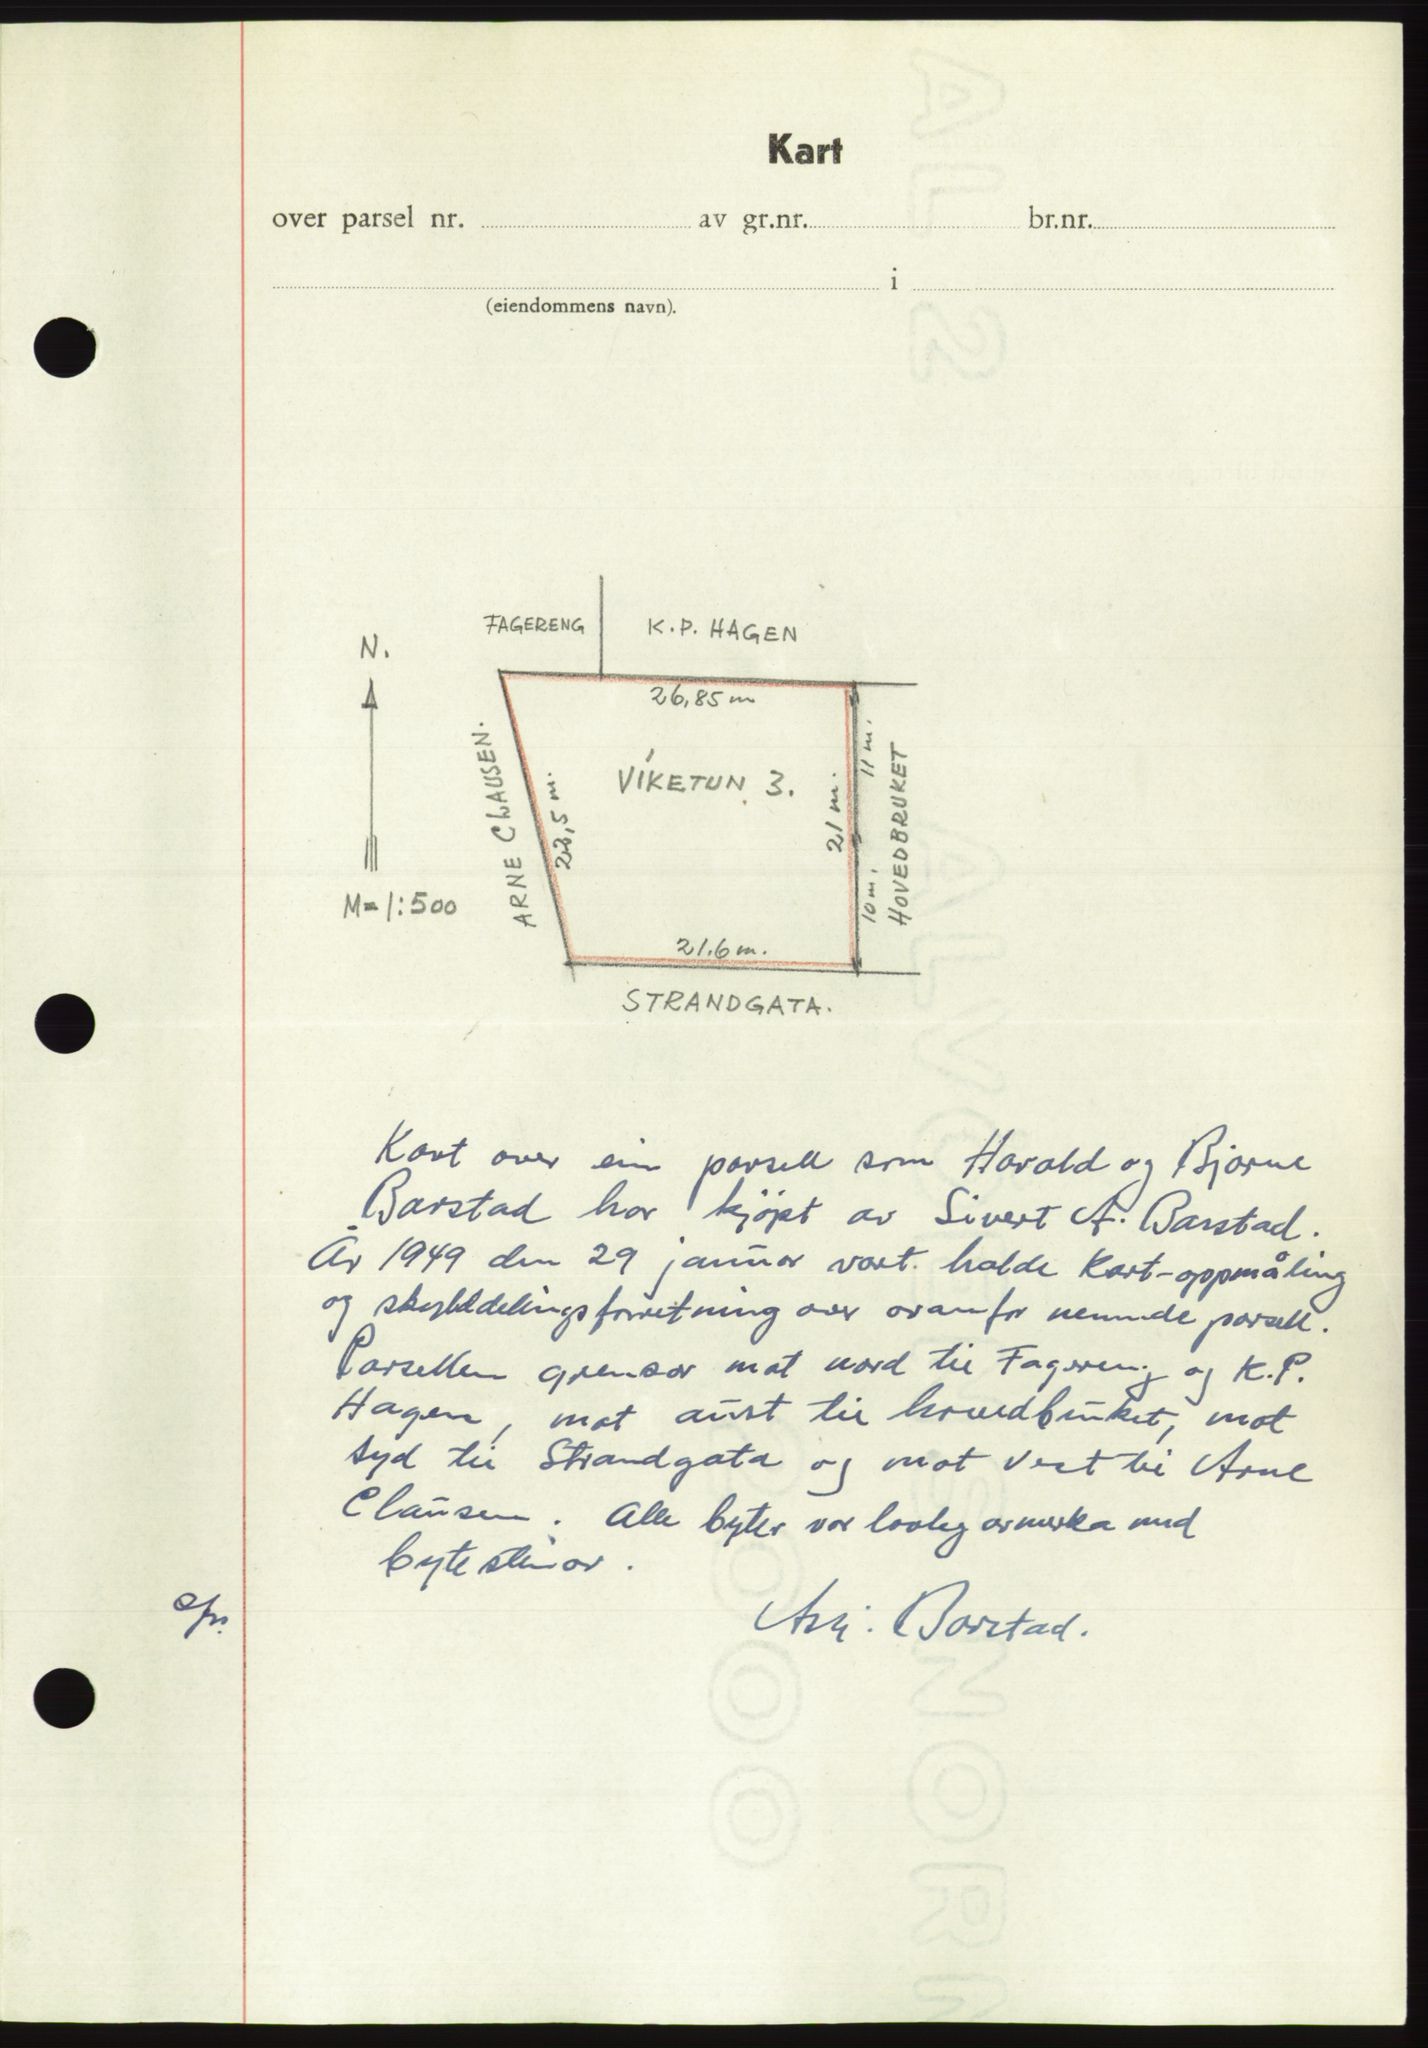 Kart
over parsel nr. av gr.nr. br.nr.
i
(eiendommens navn).
FAGERENG K.P. HAGEN
N.
26,85 m
ARNE CLAUSEN.
VIKETUN 3.
21 m.
11 m.
10 m.
HOVEDBRUKET
M= 1:500
21.6 m.
STRANDGATA.
Kart over ein parsell som Harald og Bjarne
Barstad har kjöpt av Sivert A. Barstad.
År 1949 den 29 januar vart halde Kart-oppmåling
og skylddelingsforretning over ovanfor nemnde parsell.
Parsellen grensar mot nord til Fagereng og K.P.
Hagen, mot aust til hovedbruket, mot
syd til Strandgata og mot vest til Arne
Clausen. Alle byter var lovleg avmerka med
bytesteinar.
Barstad.